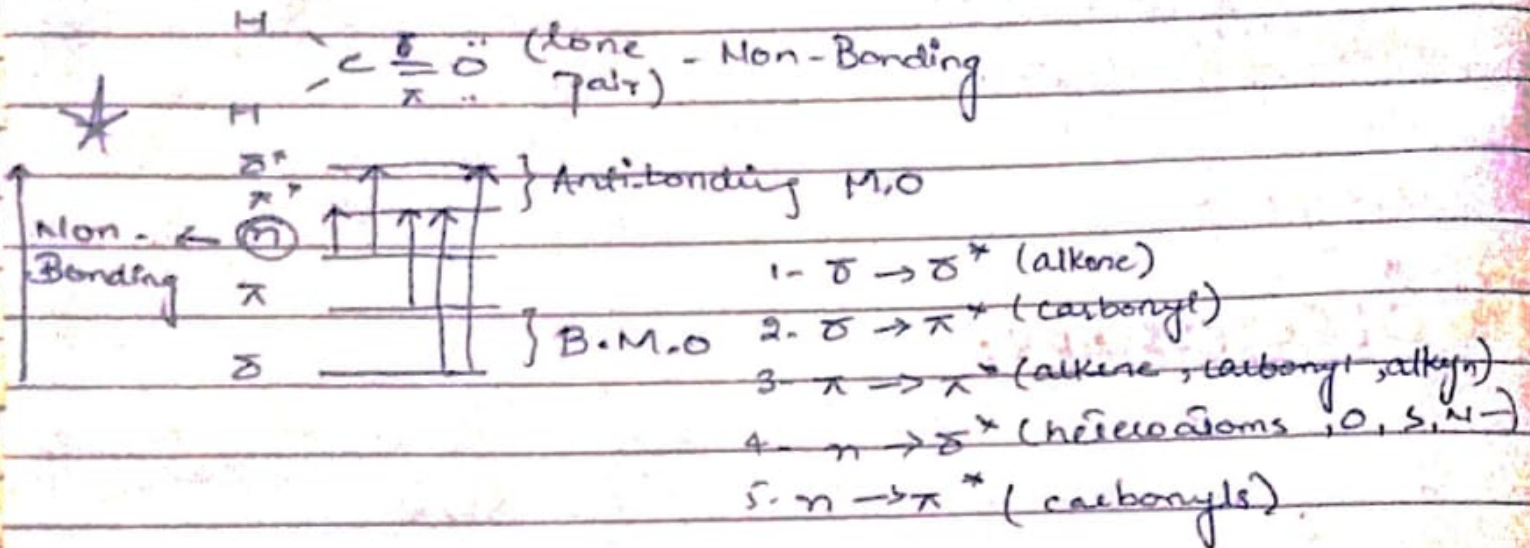 H
C σ = π Ö (lone pair) - Non-Bonding
H
σ*
π* } Antibonding M.O
Non-Bonding ← n
π
σ } B.M.O
1- σ → σ* (alkane)
2- σ → π* (carbonyl)
3- π → π* (alkene, carbonyl, alkyn)
4- n → σ* (heteroatoms, O, S, N-)
5- n → π* (carbonyls)